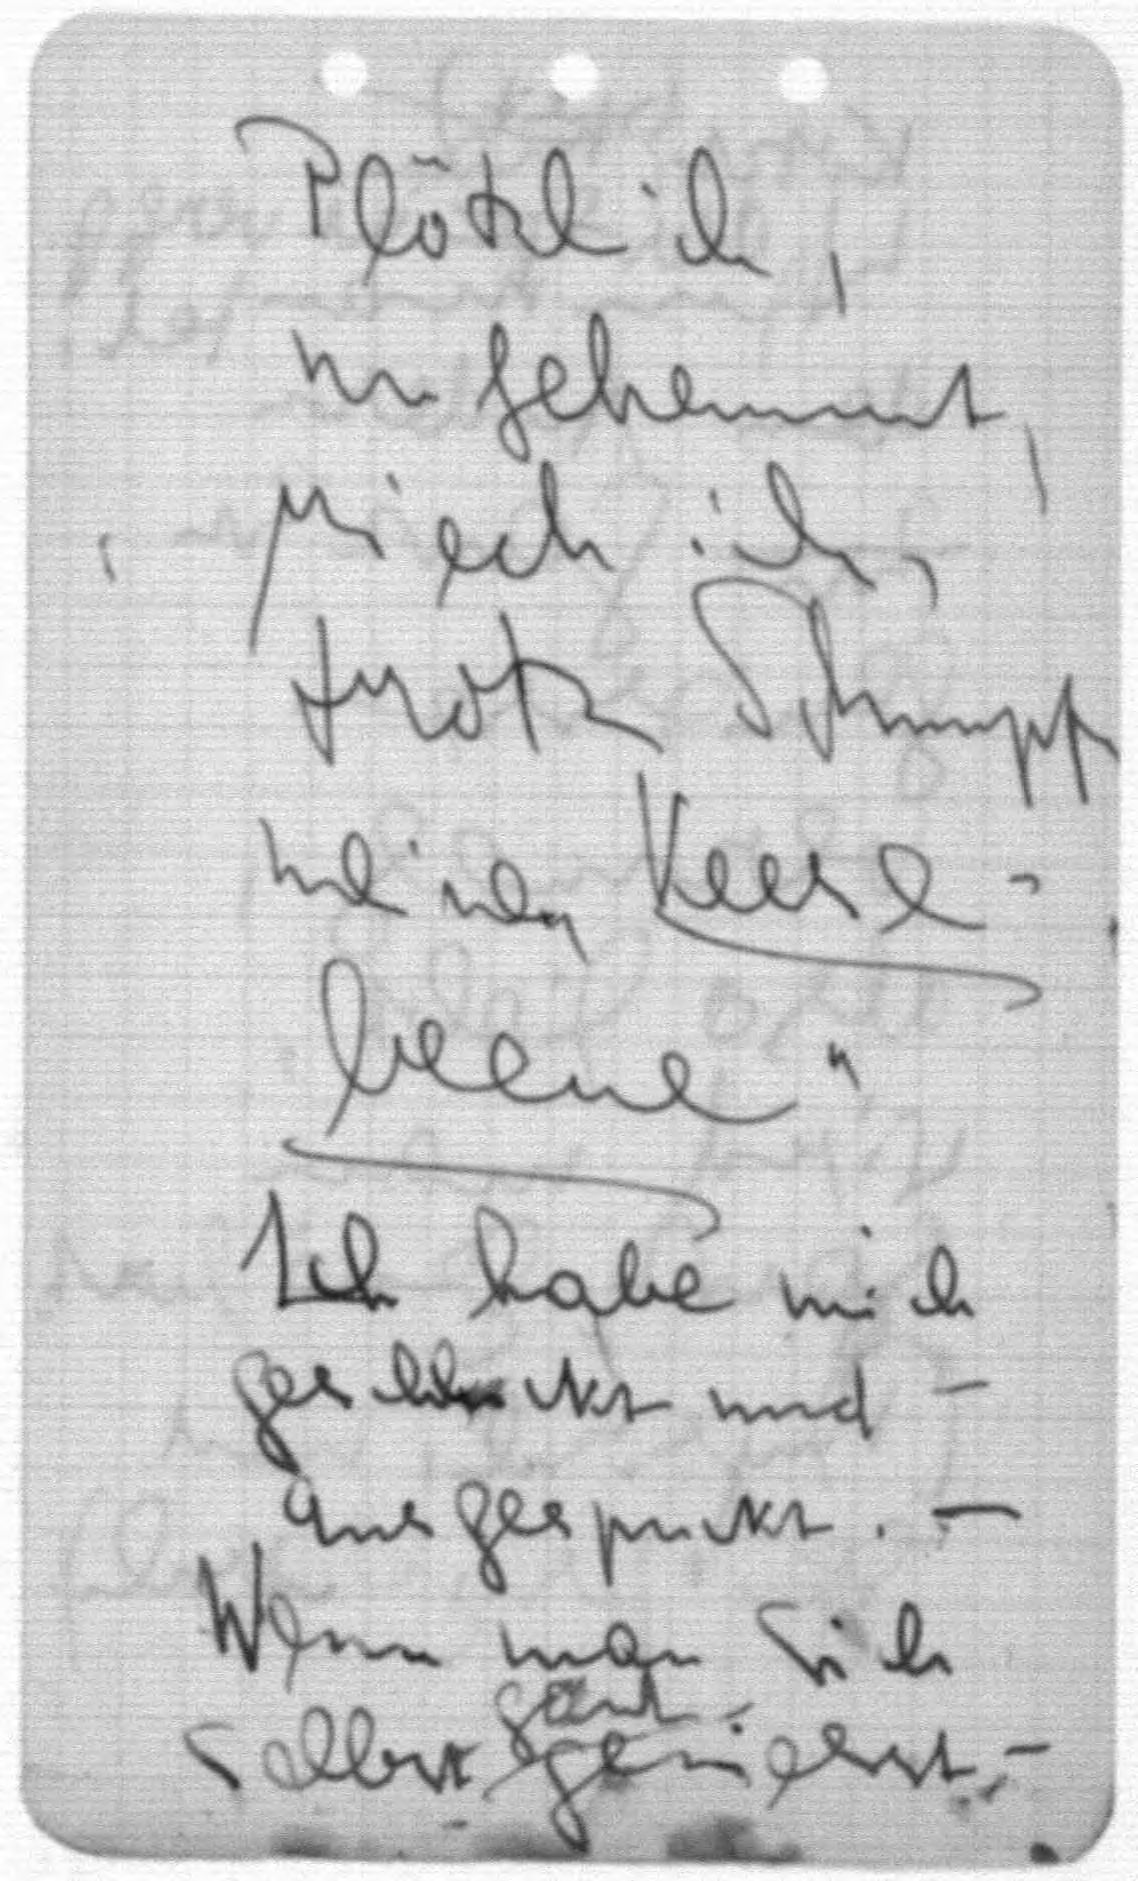 Plötzlich,
ungehemmt,
riech ich,
trotz Schnupf
meinen Keese-
beene"
Ich habe mich
geschluckt und –
ausgespuckt. –
Wenn man sich
ganz –
selbst geniesst, –